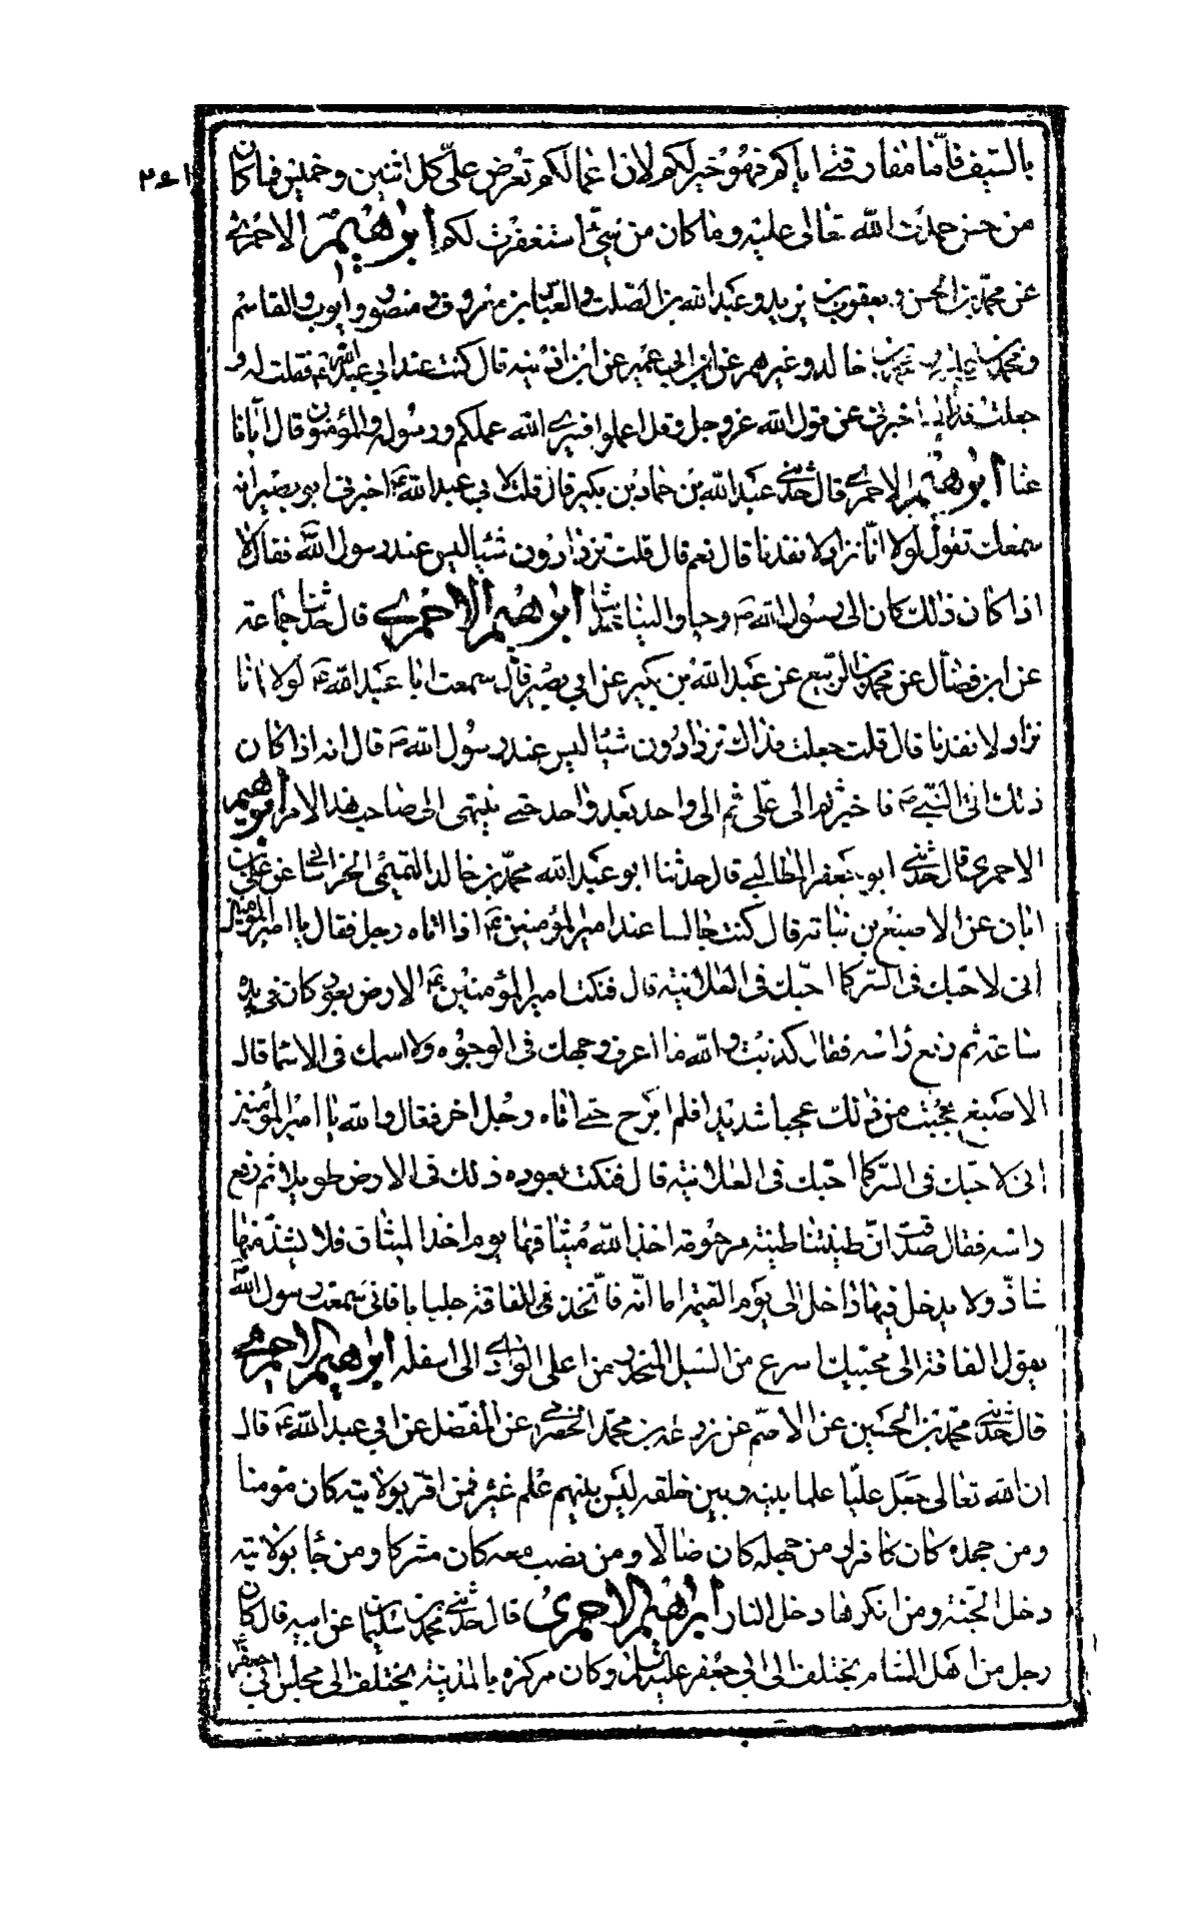 بالسيف فامّا مفارقتى اياكم فهو خير لكم لان اعمالكم تعرض علىّ كل اثنين وخميس فما كان
من حسن حمدت الله تعالى عليه وما كان من سيّئ استغفرت لكم ابراهيم الاحمرى
عن محمّد بن الحسن و يعقوب بن يزيد و عبد الله بن الصلت والعباس بن معروف و منصور وايوب والقاسم
ومحمد بن خالد وغيرهم عن ابن ابى عمير عن ابن اذينه قال كنت عند ابى عبد الله ع فقلت له
جعلت فداك اخبرنى عن قول الله عز وجل وقل اعملوا فسيرى الله عملكم ورسوله والمؤمنون قال ايّانا
عنا ابرهيم الاحمرى قال حدثنى عبد الله بن حماد بن بكير قال قلت لابى عبد الله ع اخبرنى ابو بصير انه
سمعك تقول لولا انّا نزاد لانفدنا قال نعم قال قلت تزدادون شيئا ليس عند رسول الله ص فقال لا
اذا كان ذلك كان الى رسول الله ص وحيا والينا حديثا ابرهيم الاحمرى قال حدثنا جماعة
عن ابن فضّال عن محمد بن الربيع عن عبد الله بن بكير عن ابى بصير قال سمعت ابا عبد الله ع لولا انا
نزاد لانفدنا قال قلت جعلت فداك تزدادون شيئا ليس عند رسول الله ص قال انه اذا كان
ذلك اتى النبى ص فاخبر ثم الى على ثم الى واحد بعد واحد حتى ينتهى الى صاحب هذا الامر ابرهيم
الاحمرى قال حدثنى ابو جعفر الطالبى قال حدثنا ابو عبد الله محمّد بن خالد التميمى الخراسانى عن على بن
ابان عن الاصبغ بن نباته قال كنت جالسا عند امير المؤمنين ع اذا اتاه رجل فقال يا امير المؤمنين
انى لاحبّك فى السّر كما احبّك فى العلانية قال فنكت امير المؤمنين ع الارض بعود كان فى يده
ساعة ثم رفع راسه فقال كذبت والله ما اعرف وجهك فى الوجوه ولا اسمك فى الاسما قال
الاصبغ عجبت من ذلك عجبا شديدا فلم ابرح حتى اتاه رجل اخر فقال والله يا امير المؤمنين
انى لاحبك فى السر كما احبّك فى العلانية قال فنكت بعوده ذلك فى الارض طويلا ثم رفع
راسه فقال صدقت انّ طينتنا طينة مرحومة اخذ الله ميثاقها يوم اخذ الميثاق فلا يشذّ منها
شاذّ ولا يدخل فيها داخل الى يوم القيمة اما انّه فاتّخذ للفاقة جلبابا فانى سمعت رسول الله ص
يقول الفاقة الى محبّيك اسرع من السيل المنحدر من اعلى الوادى الى اسفله ابرهيم الاحمرى
قال حدثنى محمّد بن الحسين عن الاصمّ عن زرعة بن محمّد الحضرمى عن المفضل عن ابى عبد الله ع قال
ان الله تعالى جعل عليّا علما بينه وبين خلقه ليس بينهم علم غيره فمن اقرّ بولايته كان مؤمنا
ومن جحده كان كافرا ومن جهله كان ضالّا ومن نصب معه كان مشركا ومن جا بولايته
دخل الجنة ومن انكرها دخل النار ابراهيم الاحمرى قال حدثنى محمّد بن سليمان عن ابيه قال كان
رجل من اهل الشام يختلف الى ابى جعفر عليه السلام وكان مركزه بالمدينة يختلف الى مجلس ابى جعفر